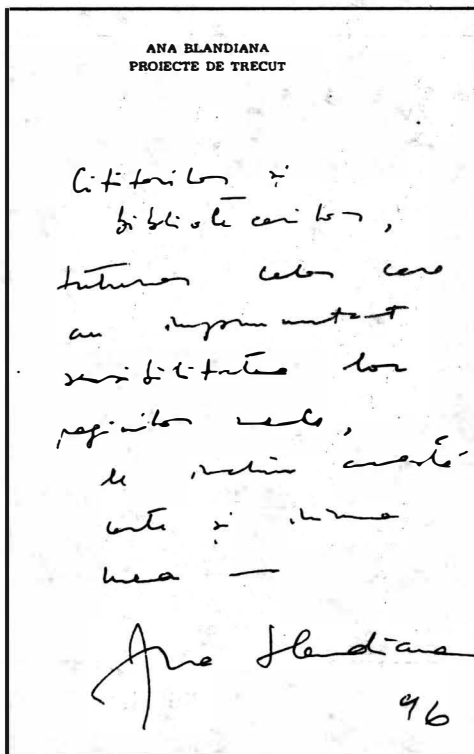 ANA BLANDIANA
PROIECTE DE TRECUT
Cititorilor și
bibliotecarilor,
tuturor celor care
au împrumutat
sensibilitatea lor
paginilor mele,
le închin această
carte și inima
mea —
Ana Blandiana
96